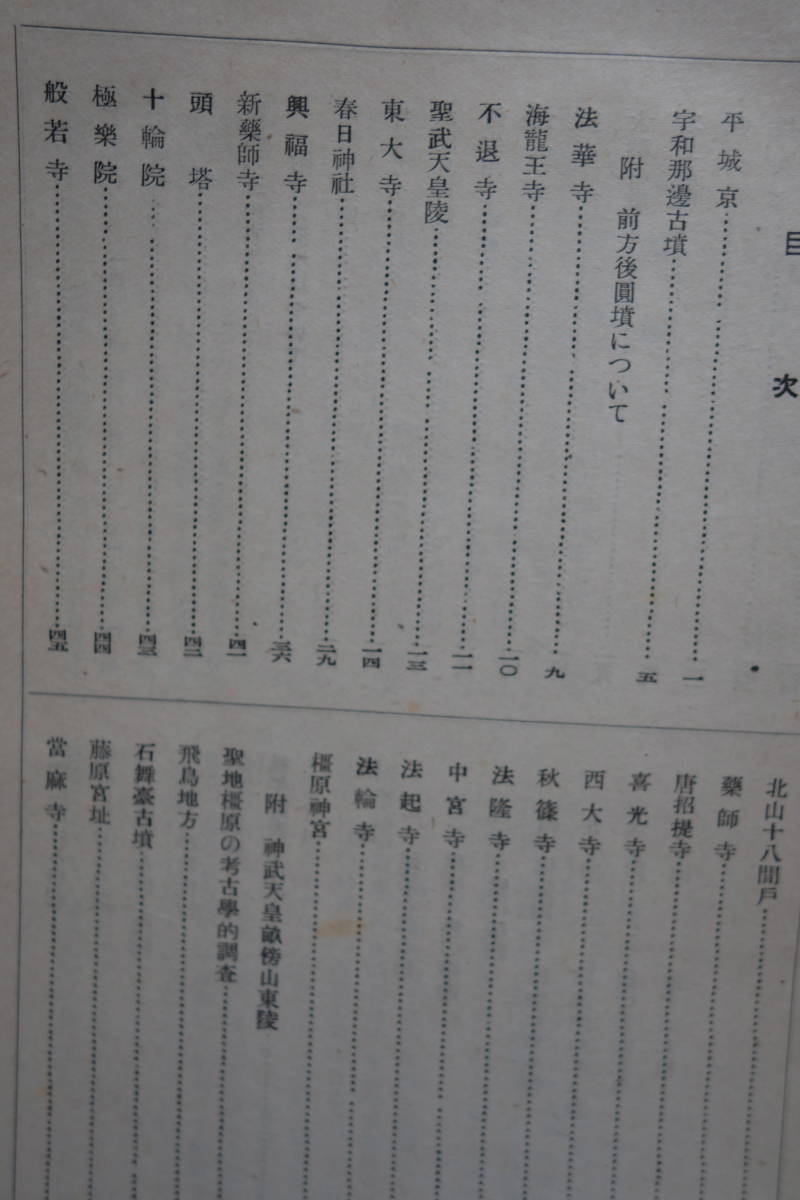 目次
平城京…………一
宇和那邊古墳…………五
附 前方後圓墳について
法華寺…………九
海龍王寺…………一〇
不退寺…………一一
聖武天皇陵…………一三
東大寺…………一四
春日神社…………二九
興福寺…………三六
新藥師寺…………四一
頭塔…………四二
十輪院…………四三
極樂院…………四四
般若寺…………四五
北山十八間戸…………
藥師寺…………
唐招提寺…………
喜光寺…………
西大寺…………
秋篠寺…………
法隆寺…………
中宮寺…………
法起寺…………
法輪寺…………
橿原神宮…………
附 神武天皇畝傍山東陵
聖地橿原の考古學的調査…………
飛鳥地方…………
石舞臺古墳…………
藤原宮址…………
當麻寺…………